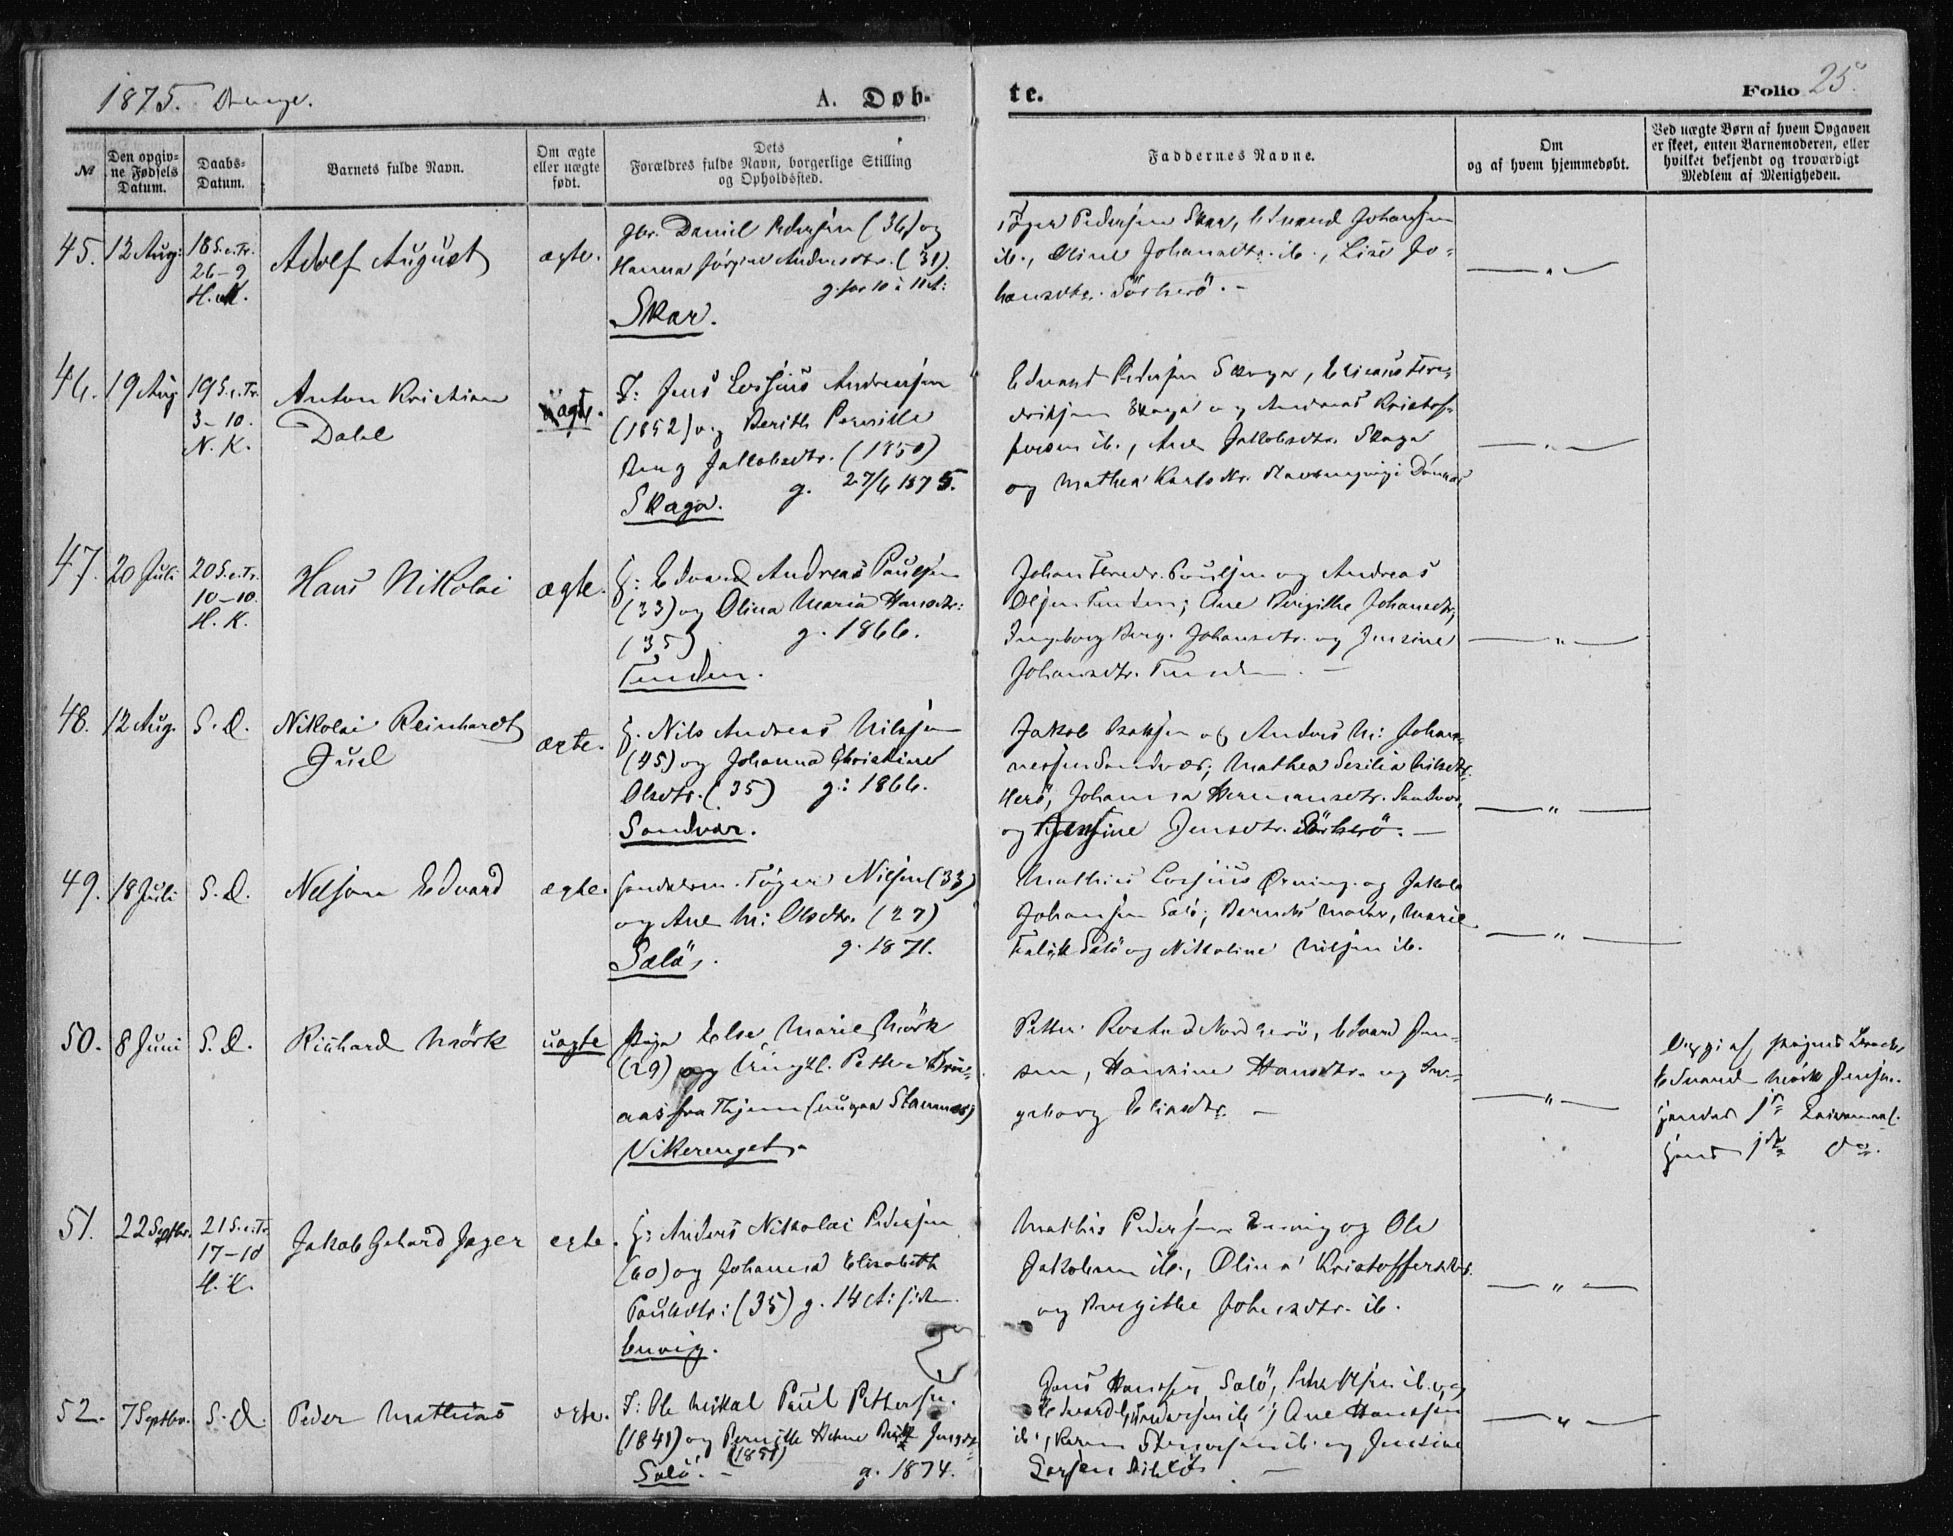 1875. Drenge.
A. Døb-
te.
Folio 25.
№
Den opgiv-
ne Fødsels
Datum.
Daabs-
Datum.
Barnets fulde Navn.
Om ægte
eller uægte
født.
Dets
Forældres fulde Navn, borgerlige Stilling
og Opholdssted.
Faddernes Navne.
Om
og af hvem hjemmedøbt.
Ved uægte Børn af hvem Opgaven
er skeet, enten Barnemoderen, eller
hvilket bekjendt og troværdigt
Medlem af Menigheden.
45. 12 Aug:
18 S. e. Tr.
26-9
H. K.
Adolf August
ægte.
Daniel Pedersen (36) og
Hanna Jørgine Andersdtr. (31).
g. for 10 à 11 A:
Skar.
Pedersen Skar, Edvard Johansen
ib., Oline Johansdtr. ib., Lise Jo-
hansdtr. Sörherö. -
46. 19 Aug
19 S. e. Tr.
3-10.
N. K.
Anton Kristian
Dahl
ægte.
I: Jens Andreas Andersen
(1852) og Berith Pernille
Berg Jakobsdtr. (1850)
Skaga. g. 27/6 1875.
Edvard Pedersen Skaga,
Skaga og Andreas Kristof-
fersen ib., Ane Jakobsdtr. Skaga
og Mathea Karlsdtr.
47. 20 Juli
20 S. e. Tr.
10-10.
H. K.
Hans Nikolai
ægte.
G: Edvard Andreas Paulsen
(33) og Olina Maria Hansdtr:
(35) g. 1866.
Tenden.
Johan Paulsen og Andreas
Olsen Tenden; Ane Birgithe Johansdtr,
Ingeborg Berg. Johansdtr. og Jensine
Johansdtr. Tenden -
48. 12 Aug.
S. D.
Nikolai Reinhardt
Juel
ægte.
G. Nils Andreas Nilsen
(45) og Johanna Christine
Olsdtr. (35) g: 1866.
Sandvær.
Jakob Isaksen og Anders M: Johan-
nessen Sandvær; Mathea Sesilia Nilsdtr.
Herö, Johanna Hermansdtr. Sandvær,
og Jensine Jensdtr. Sörherö. -
49. 18 Juli
S. D.
Nelson Edvard
ægte.
Nilsen (33)
og Ane M: Olsdtr. (27)
g. 1871.
Salö.
Mathias og Jakob
Johansen Salö; Barnets Moder, Marie
Falck Salö og Nikoline Nilsen ib.
50. 8 Juni
S. D.
Richard Mörk
uægte
Pige Else Marie Mörk
(29) og Ungkl. Petter
aas fra Thjem (nupaa Stamnes)
Vikerenget.
Petter Rosted Nordherö, Edvard Jen-
sen, Hansine Hansdtr. og In-
geborg Eliasdtr. -
Opgi af pigens Broder
Edvard Mörk Jensen.
51. 22 Septbr.
21 S. e. Tr.
17-10
H. K.
Jakob Gehard Jager
egte.
G: Anders Nikolai Pedersen
(40) og Johanna Elisabeth
Paulsdtr: (35) g. 14 A: siden.
Envig.
Mathis Pedersen Envig og Ole
Jakobsen ib., Olina Kristoffersdtr.
og Birgithe Johansdtr. ib.
52. 7 Septbr.
S. D.
Peder Mathias
egte.
I: Ole Mikal Paul Pettersen.
(1841) og Pernille Helene
(1851)
Salö. - g. 1874.
Jens Hansen Salö,
Edvard ib; Ane Hansen
ib, Karen ib. og Jensine
Larsen -